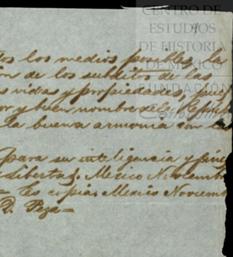 CENTRO DE
ESTUDIOS
DE HISTORIA
DE MÉXICO
FUNDACIÓN
los medios posibles la
de los subditos de las
vidas y propied
y buen nombre de la
la buena armonia con
para su inteligencia y fines
Libertad. Mexico Noviembre
Es copia. Mexico Noviemb
D. Peza